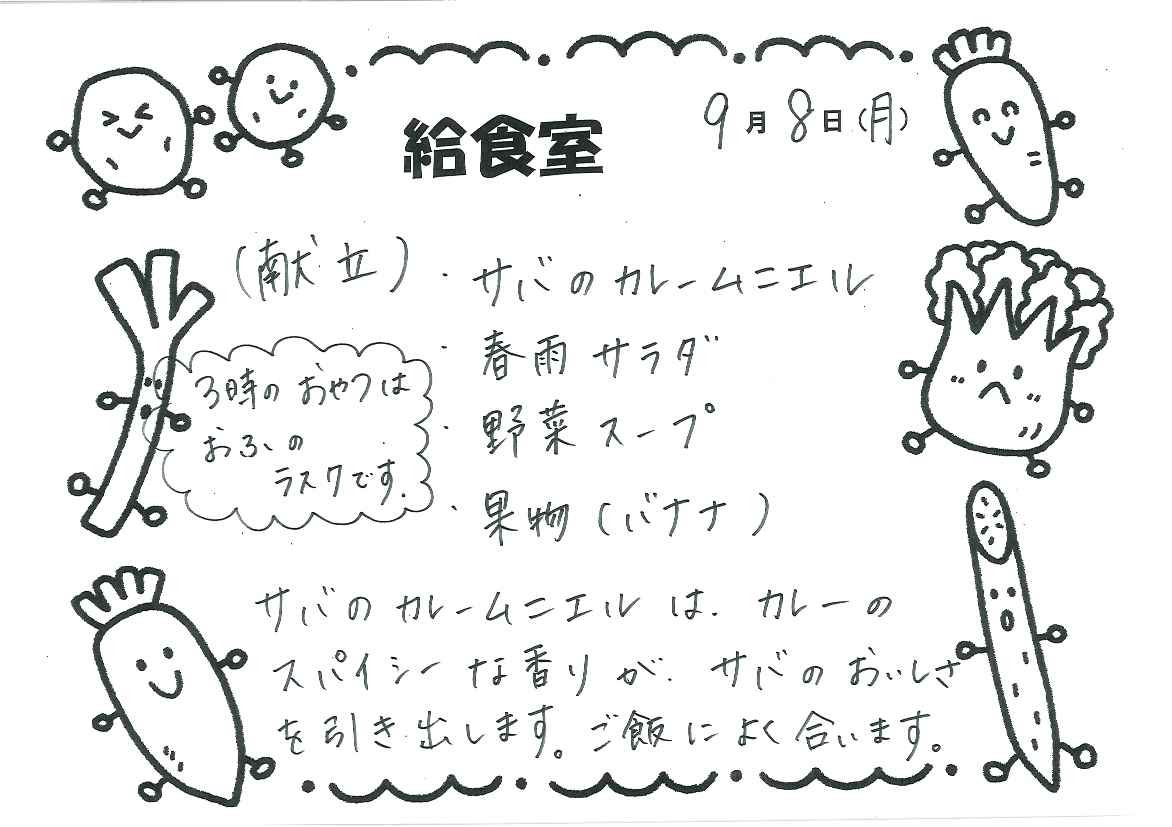 給食室
9月8日(月)
(献立)・サバのカレームニエル
・春雨サラダ
・野菜スープ
・果物(バナナ)
3時のおやつは
おふの
ラスクです.
サバのカレームニエルは、カレーの
スパイシーな香りが、サバのおいしさ
を引き出します。ご飯によく合います。